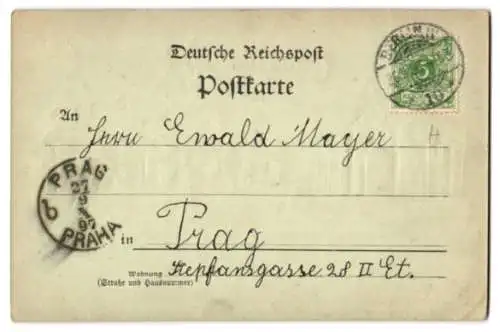 Deutsche Reichspost
Postkarte
BERLIN W
5
10
An
Herrn Ewald Mayer
H
PRAG
27
9
97
PRAHA
b
in Prag
Wohnung
(Straße und Hausnummer)
Stepfansgasse 28 II Et.